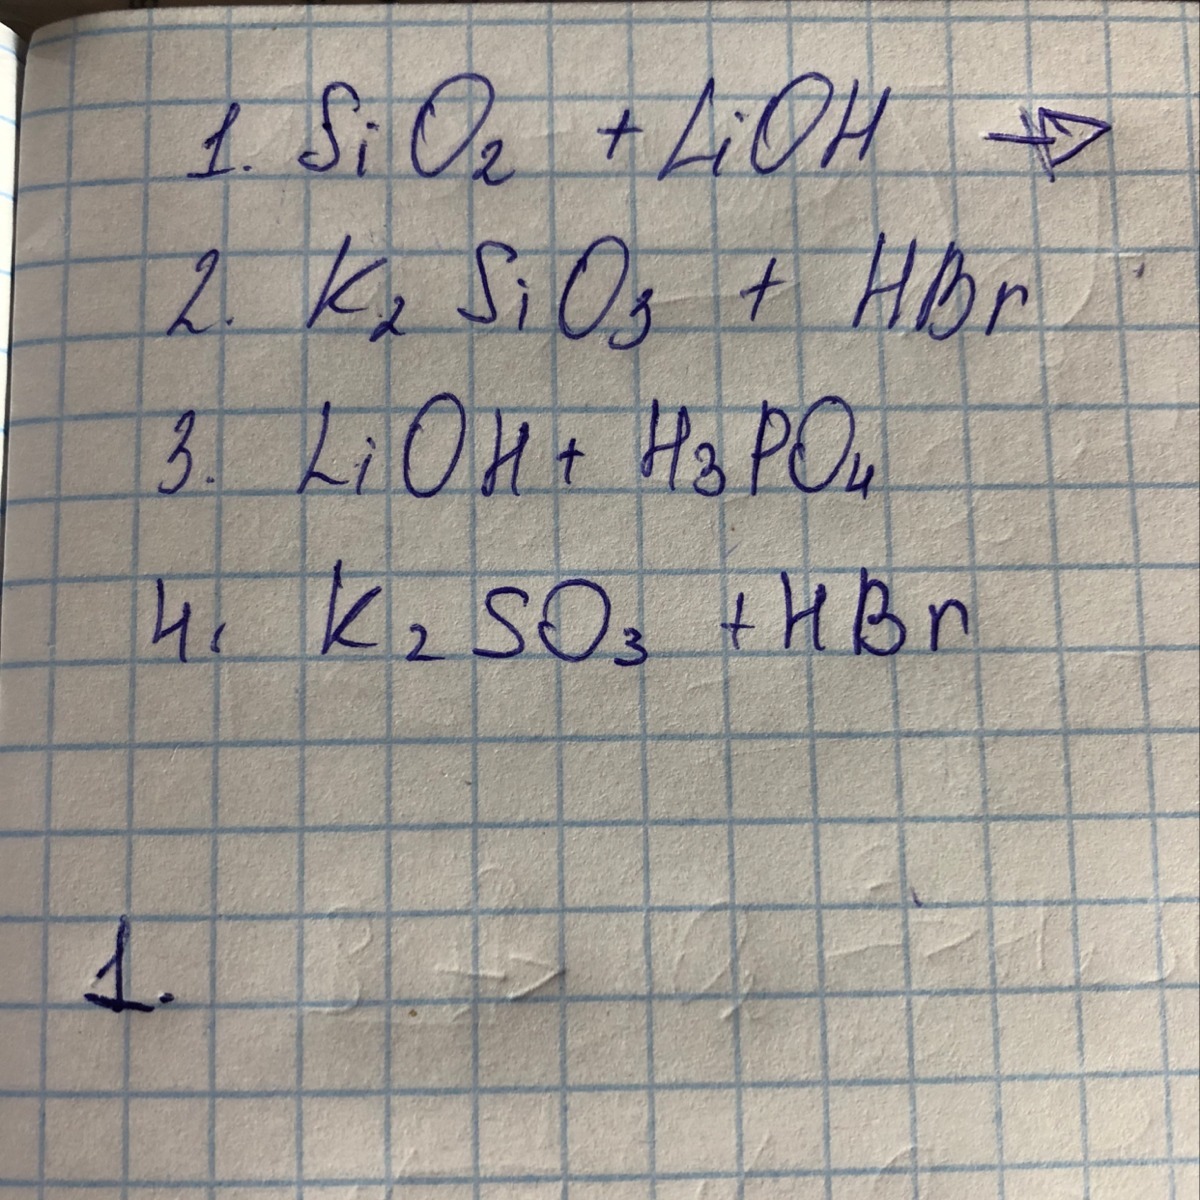 1. SiO₂ + LiOH →
2. K₂SiO₃ + HBr
3. LiOH + H₃PO₄
4. K₂SO₃ + HBr
1.